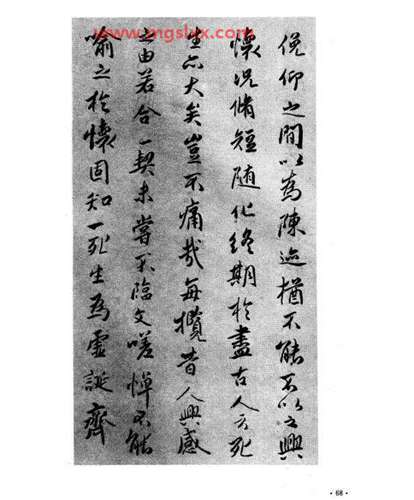 www.mgslxx.com
俛仰之間以為陳迹猶不能不以之興
懷況脩短随化終期於盡古人云死
生亦大矣豈不痛哉每攬昔人興感
之由若合一契未嘗不臨文嗟悼不能
喻之於懷固知一死生為虛誕齊
· 68 ·